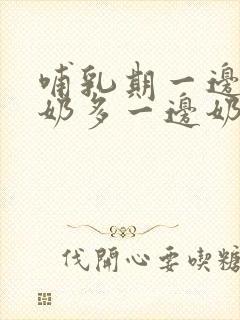 哺乳期一邊
奶多一邊奶
伐開心要喫糖